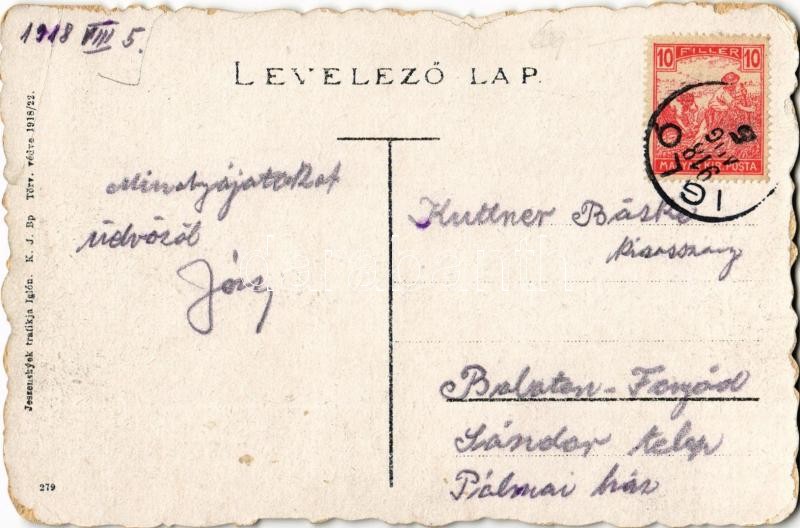 1918 VIII 5.
LEVELEZŐ LAP.
10 FILLÉR 10
MAGYAR KIR. POSTA
IGLÓ
Mindnyájatokat
üdvözöl
Kuttner Böske
kisasszony
Balaton-Fonyód
Sándor telep
Pálmai ház
Jeszenskyék trafikja Iglón. K. J. Bp Törv. védve 1918/22.
279